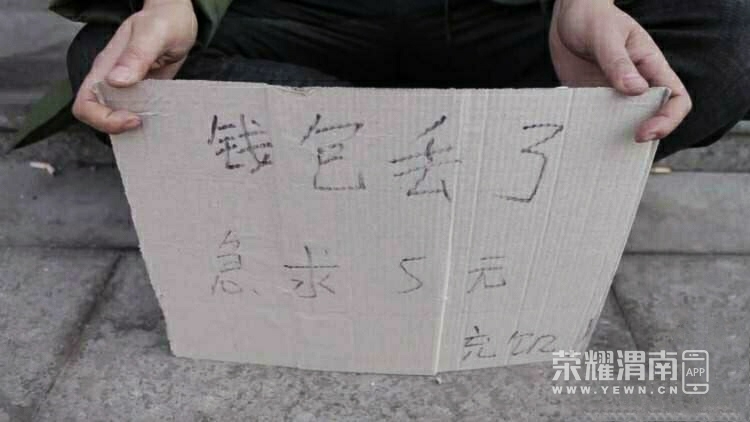 钱包丢了
急求5元
充饥
荣耀渭南 APP
WWW.YEWN.CN